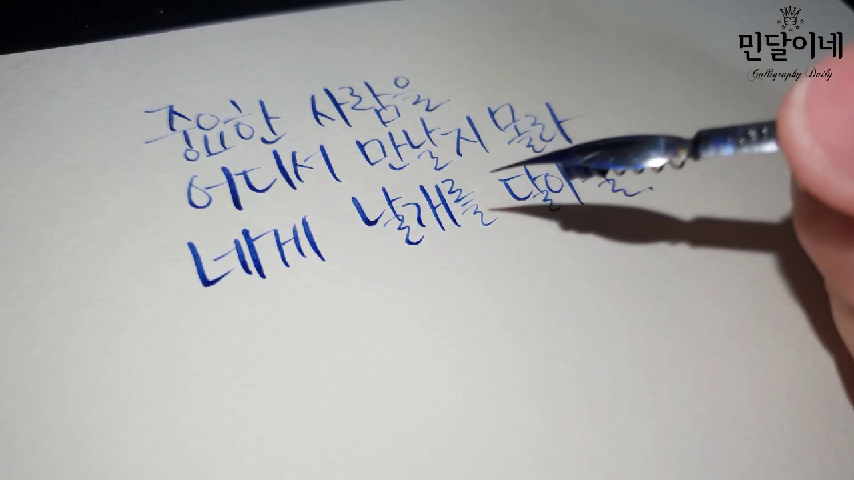 민달이네
Calligraphy Daily
중요한 사람을
어디서 만날지 몰라
네게 날개를 달아